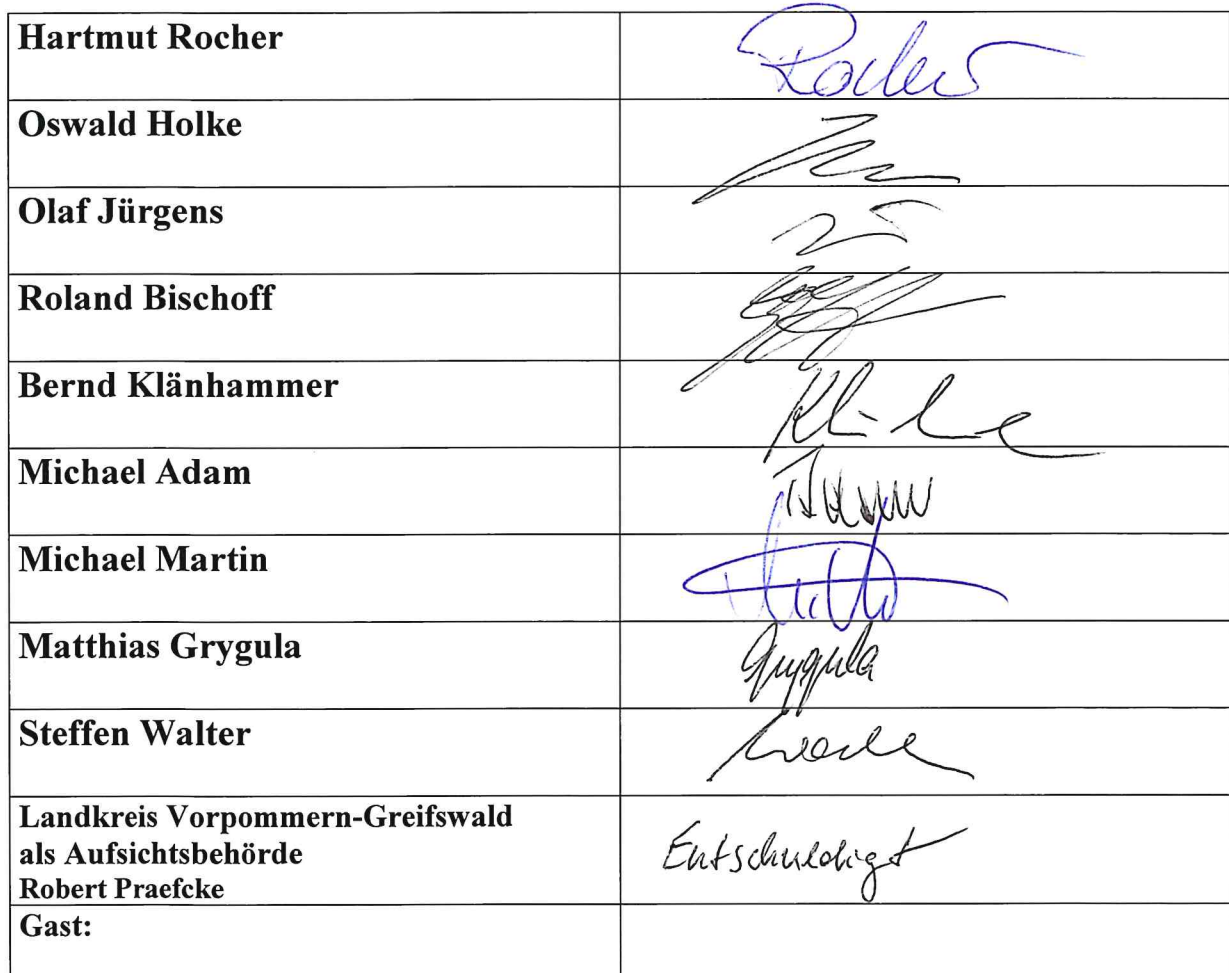 Hartmut Rocher
Rocher
Oswald Holke
Olaf Jürgens
Roland Bischoff
Bernd Klänhammer
Michael Adam
Michael Martin
Matthias Grygula
Grygula
Steffen Walter
Landkreis Vorpommern-Greifswald
als Aufsichtsbehörde
Robert Praefcke
Entschuldigt
Gast: